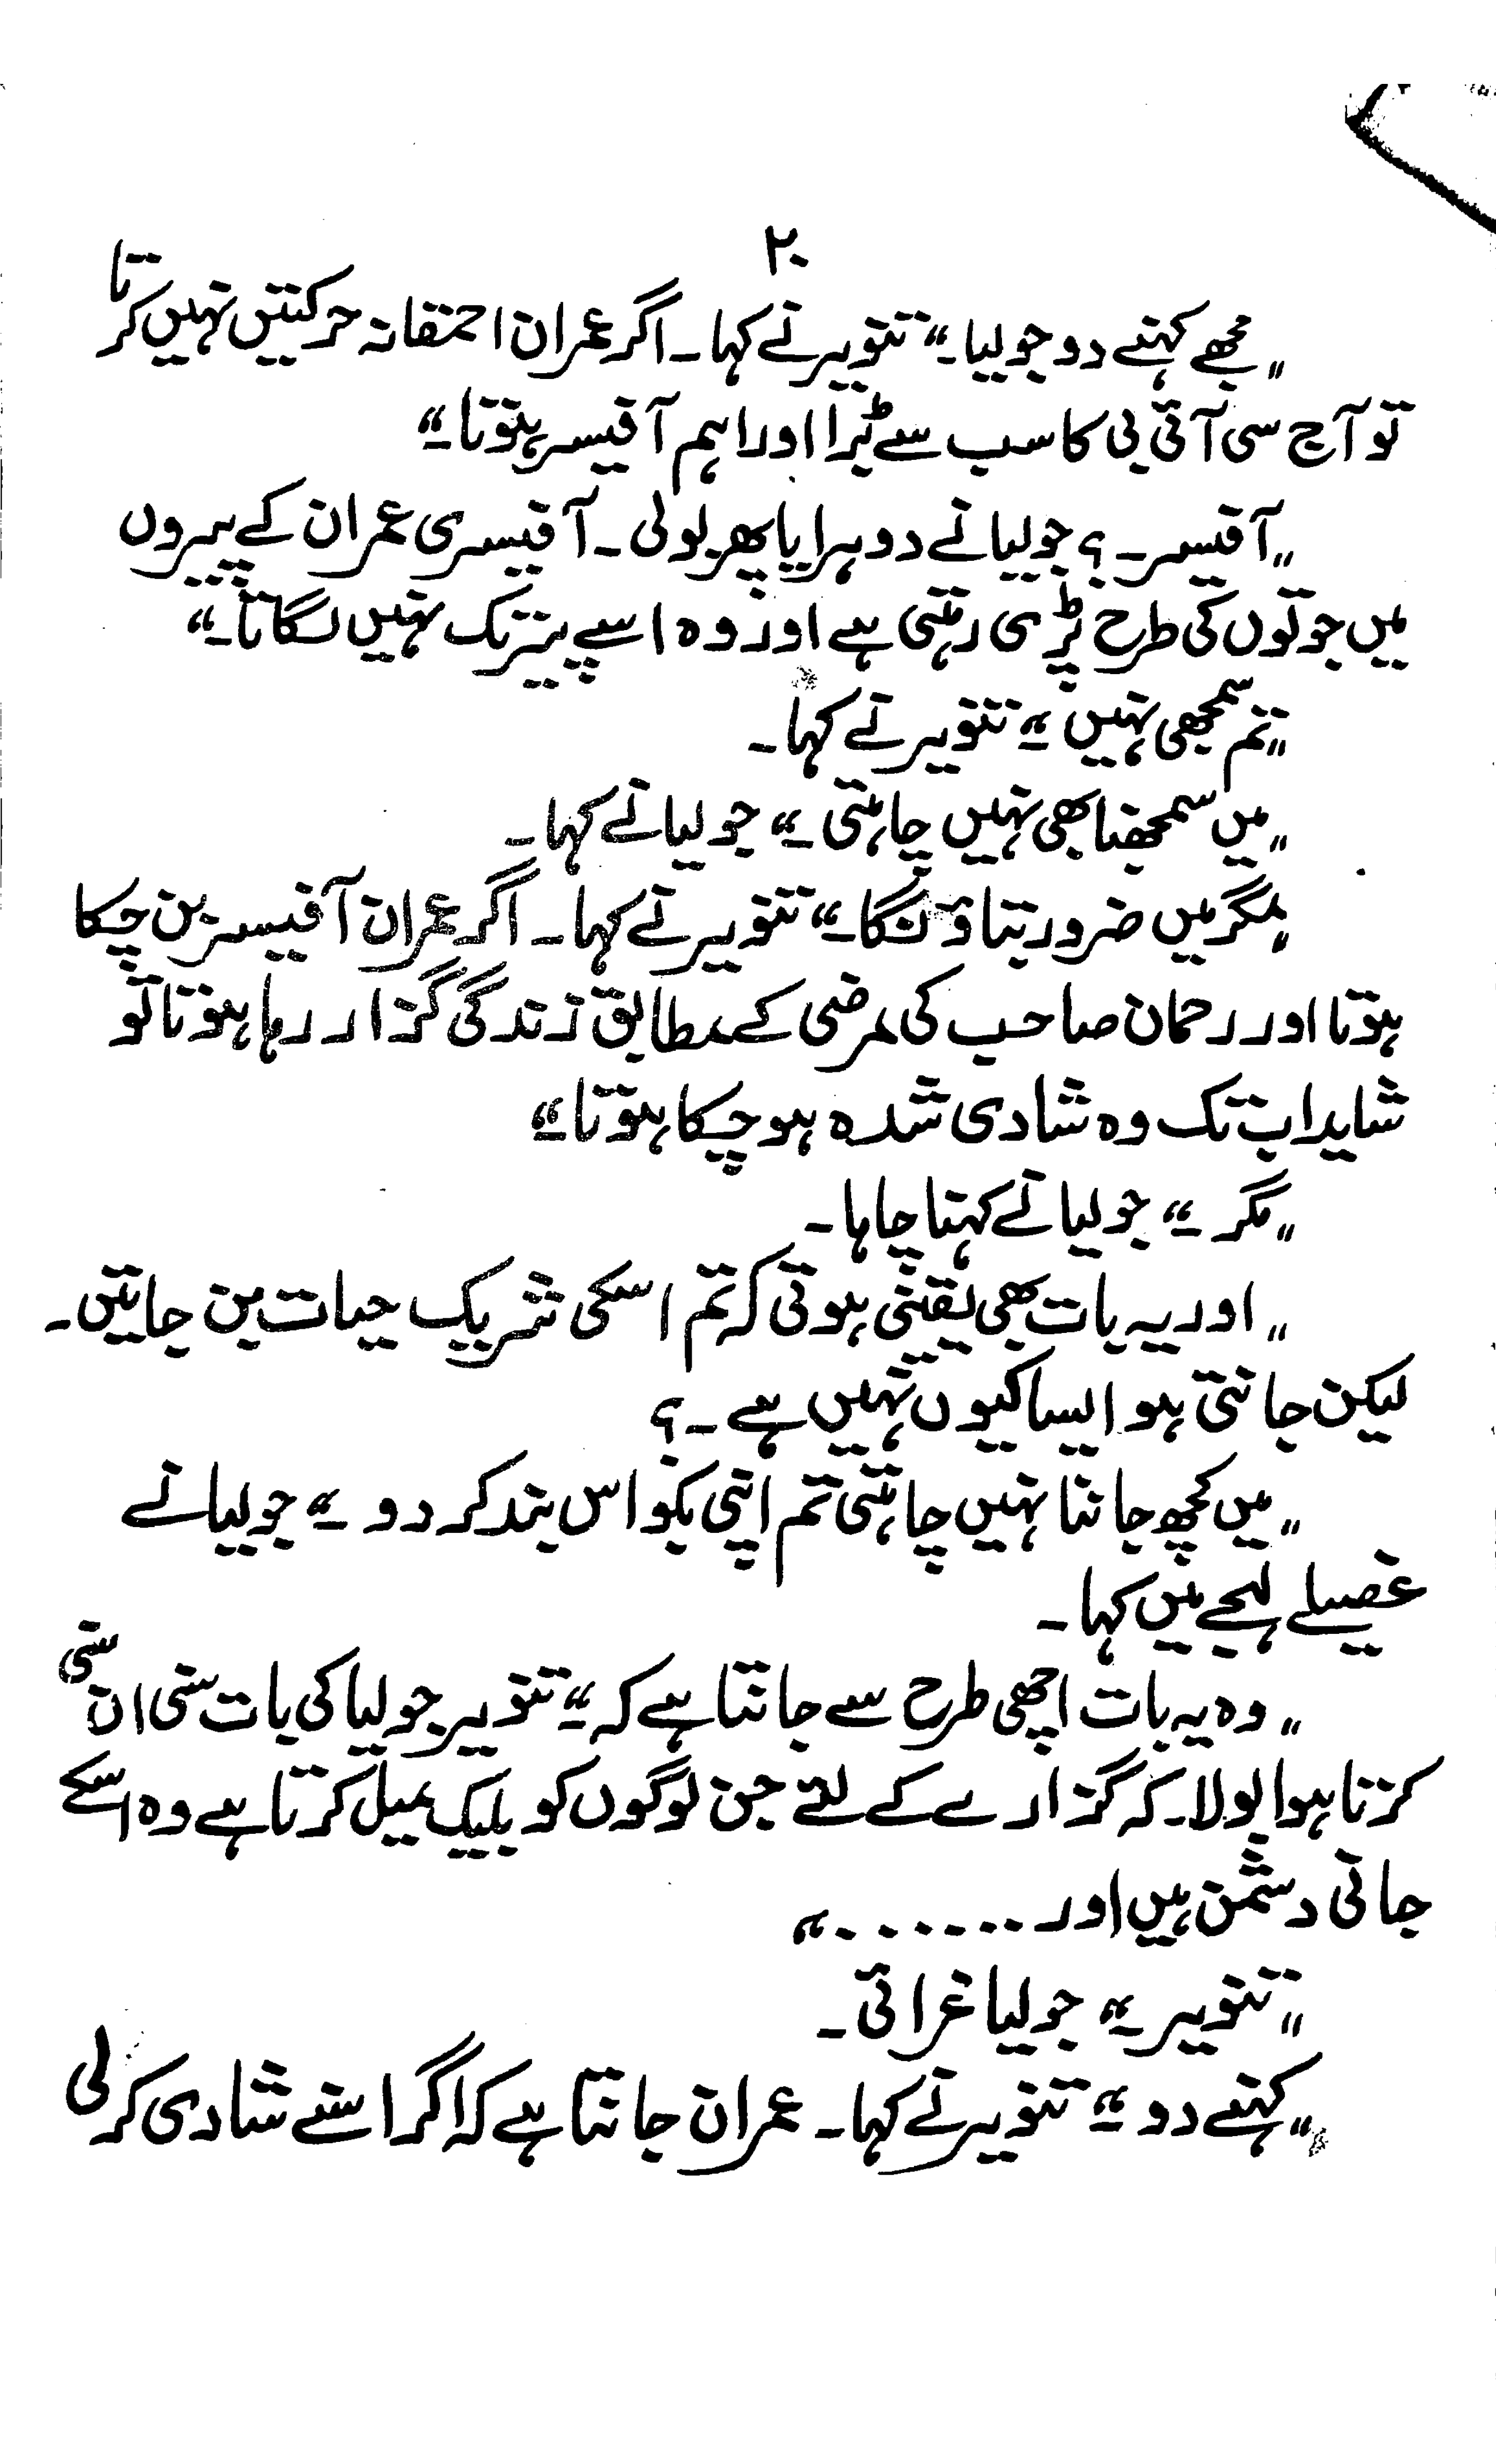 ۲۰
"مجھے کہنے دو جولیا۔" تنویر نے کہا۔ اگر عمران احمقانہ حرکتیں نہیں کرتا
تو آج سی آئی بی کا سب سے بڑا اور اہم آفیسر ہوتا۔"
"آفیسر۔؟ جولیا نے دوہرایا پھر بولی۔ آفیسری عمران کے پیروں
میں جوتوں کی طرح پڑی رہتی ہے اور وہ اسے پیر تک نہیں لگاتا۔"
"تم سمجھی نہیں۔" تنویر نے کہا۔
"میں سمجھنا بھی نہیں چاہتی۔" جولیا نے کہا۔
"مگر میں ضرور بتاؤنگا۔" تنویر نے کہا۔ اگر عمران آفیسر بن چکا
ہوتا اور رحمان صاحب کی مرضی کے مطابق زندگی گزار رہا ہوتا تو
شاید اب تک وہ شادی شدہ ہو چکا ہوتا۔"
"مگر۔" جولیا نے کہنا چاہا۔
"اور یہ بات بھی یقینی ہوتی کہ تم اسکی شریک حیات بن جاتیں۔
لیکن جانتی ہو ایسا کیوں نہیں ہے۔؟
"میں کچھ جاننا نہیں چاہتی تم اپنی بکواس بند کر دو۔" جولیا نے
غصیلے لہجے میں کہا۔
"وہ یہ بات اچھی طرح سے جانتا ہے کہ۔" تنویر جولیا کی بات سنی ان سنی
کرتا ہوا بولا۔ کہ گزارے کے لئے جن لوگوں کو بلیک میل کرتا ہے وہ اسکے
جانی دشمن ہیں اور ......."
"تنویر۔" جولیا غرائی۔
"کہنے دو۔" تنویر نے کہا۔ عمران جانتا ہے کہ اگر اسنے شادی کرلی